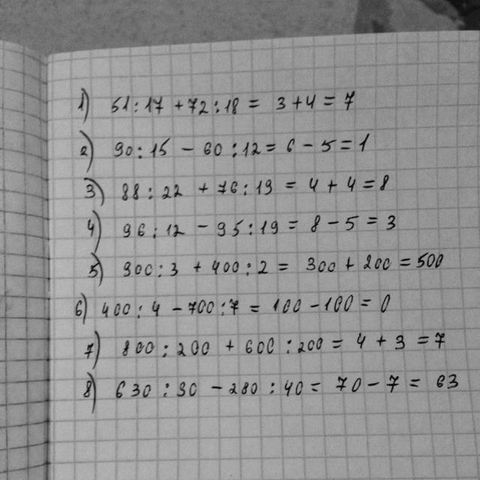 1) 51:17 + 72:18 = 3+4=7
2) 90:15 - 60:12 = 6-5=1
3) 88:22 + 76:19 = 4+4=8
4) 96:12 - 95:19 = 8-5=3
5) 900:3 + 400:2 = 300+200=500
6) 400:4 - 700:7 = 100-100=0
7) 800:200 + 600:200 = 4+3=7
8) 630:90 - 280:40 = 70-7=63